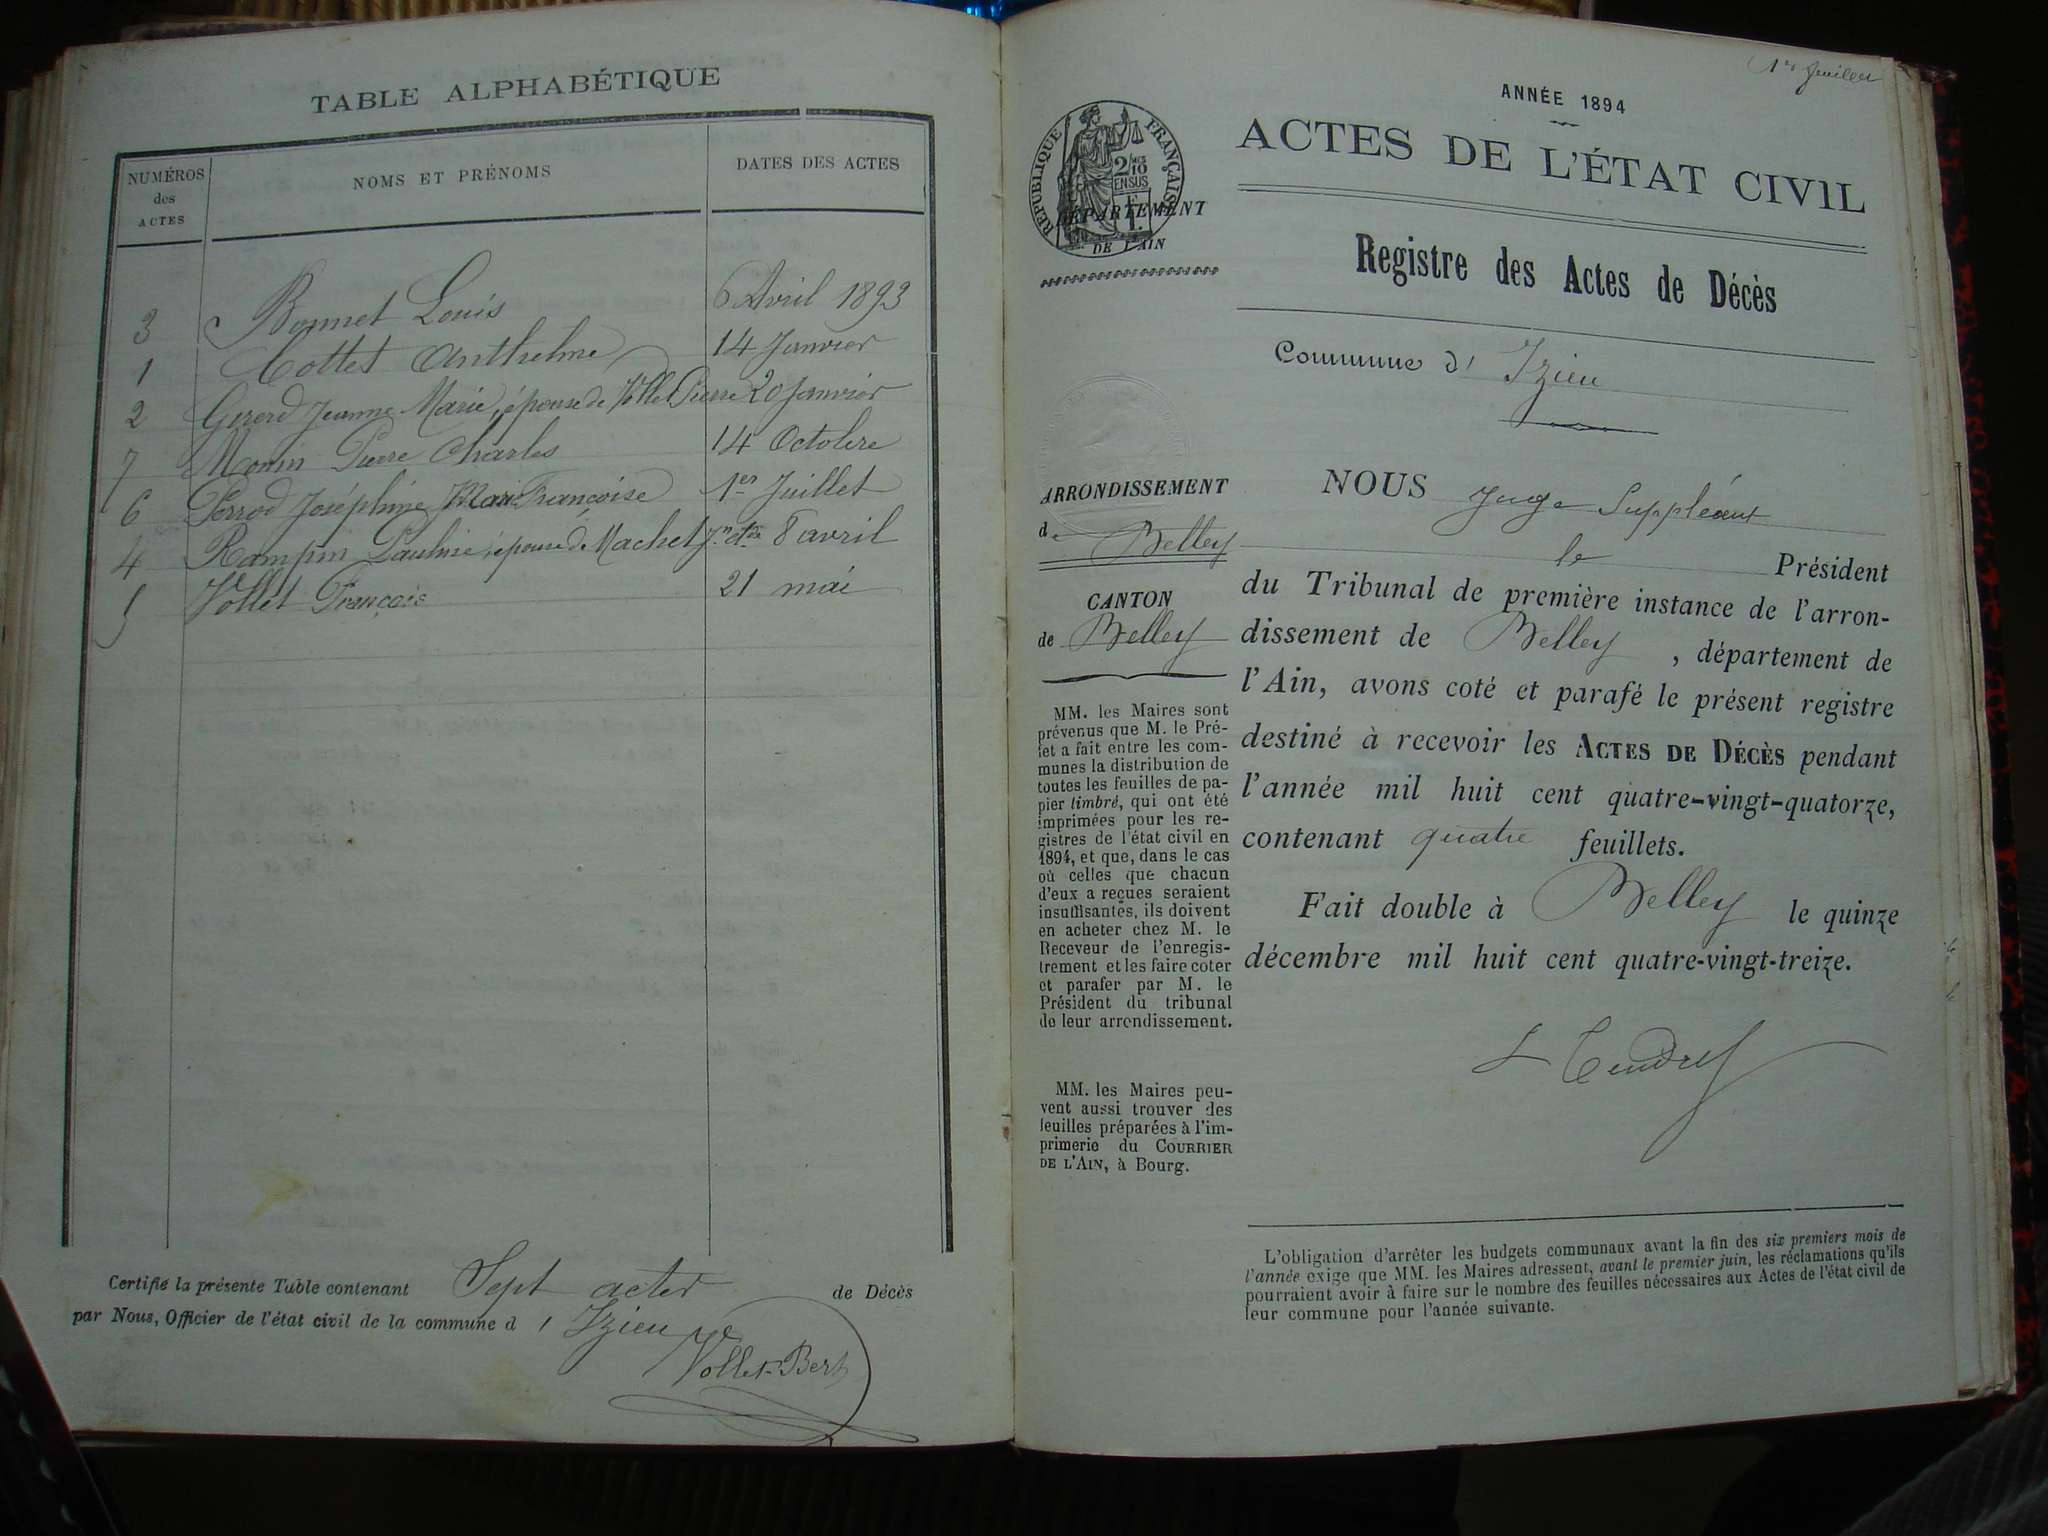 TABLE ALPHABÉTIQUE
NUMÉROS des ACTES
NOMS ET PRÉNOMS
DATES DES ACTES
3 Bonnet Louis 6 Avril 1893
1 Cottet Anthelme 14 Janvier
2 Girerd Jeanne Marie, épouse de Vollet Pierre 20 Janvier
7 Monin Pierre Charles 14 Octobre
6 Perrod Joséphine Marie Françoise 1er Juillet
4 Rampin Pauline, épouse de Machet 8 avril
5 Vollet François 21 mai
Certifié la présente Table contenant Sept actes de Décès
par Nous, Officier de l'état civil de la commune d' Izieu
Vollet-Bert
1er feuillet
ANNÉE 1894
ACTES DE L'ÉTAT CIVIL
RÉPUBLIQUE FRANÇAISE
2/10 EN SUS
DÉPARTEMENT
DE L'AIN
Registre des Actes de Décès
Commune d' Izieu
ARRONDISSEMENT
de Belley
CANTON
de Belley
MM. les Maires sont
prévenus que M. le Pré-
fet a fait entre les com-
munes la distribution de
toutes les feuilles de pa-
pier timbré, qui ont été
imprimées pour les re-
gistres de l'état civil en
1894, et que, dans le cas
où celles que chacun
d'eux a reçues seraient
insuffisantes, ils doivent
en acheter chez M. le
Receveur de l'enregis-
trement et les faire coter
et parafer par M. le
Président du tribunal
de leur arrondissement.
MM. les Maires peu-
vent aussi trouver des
feuilles préparées à l'im-
primerie du COURRIER
DE L'AIN, à Bourg.
NOUS Juge Suppléant
le Président
du Tribunal de première instance de l'arron-
dissement de Belley, département de
l'Ain, avons coté et parafé le présent registre
destiné à recevoir les ACTES DE DÉCÈS pendant
l'année mil huit cent quatre-vingt-quatorze,
contenant quatre feuillets.
Fait double à Belley le quinze
décembre mil huit cent quatre-vingt-treize.
L'obligation d'arrêter les budgets communaux avant la fin des six premiers mois de
l'année exige que MM. les Maires adressent, avant le premier juin, les réclamations qu'ils
pourraient avoir à faire sur le nombre des feuilles nécessaires aux Actes de l'état civil de
leur commune pour l'année suivante.